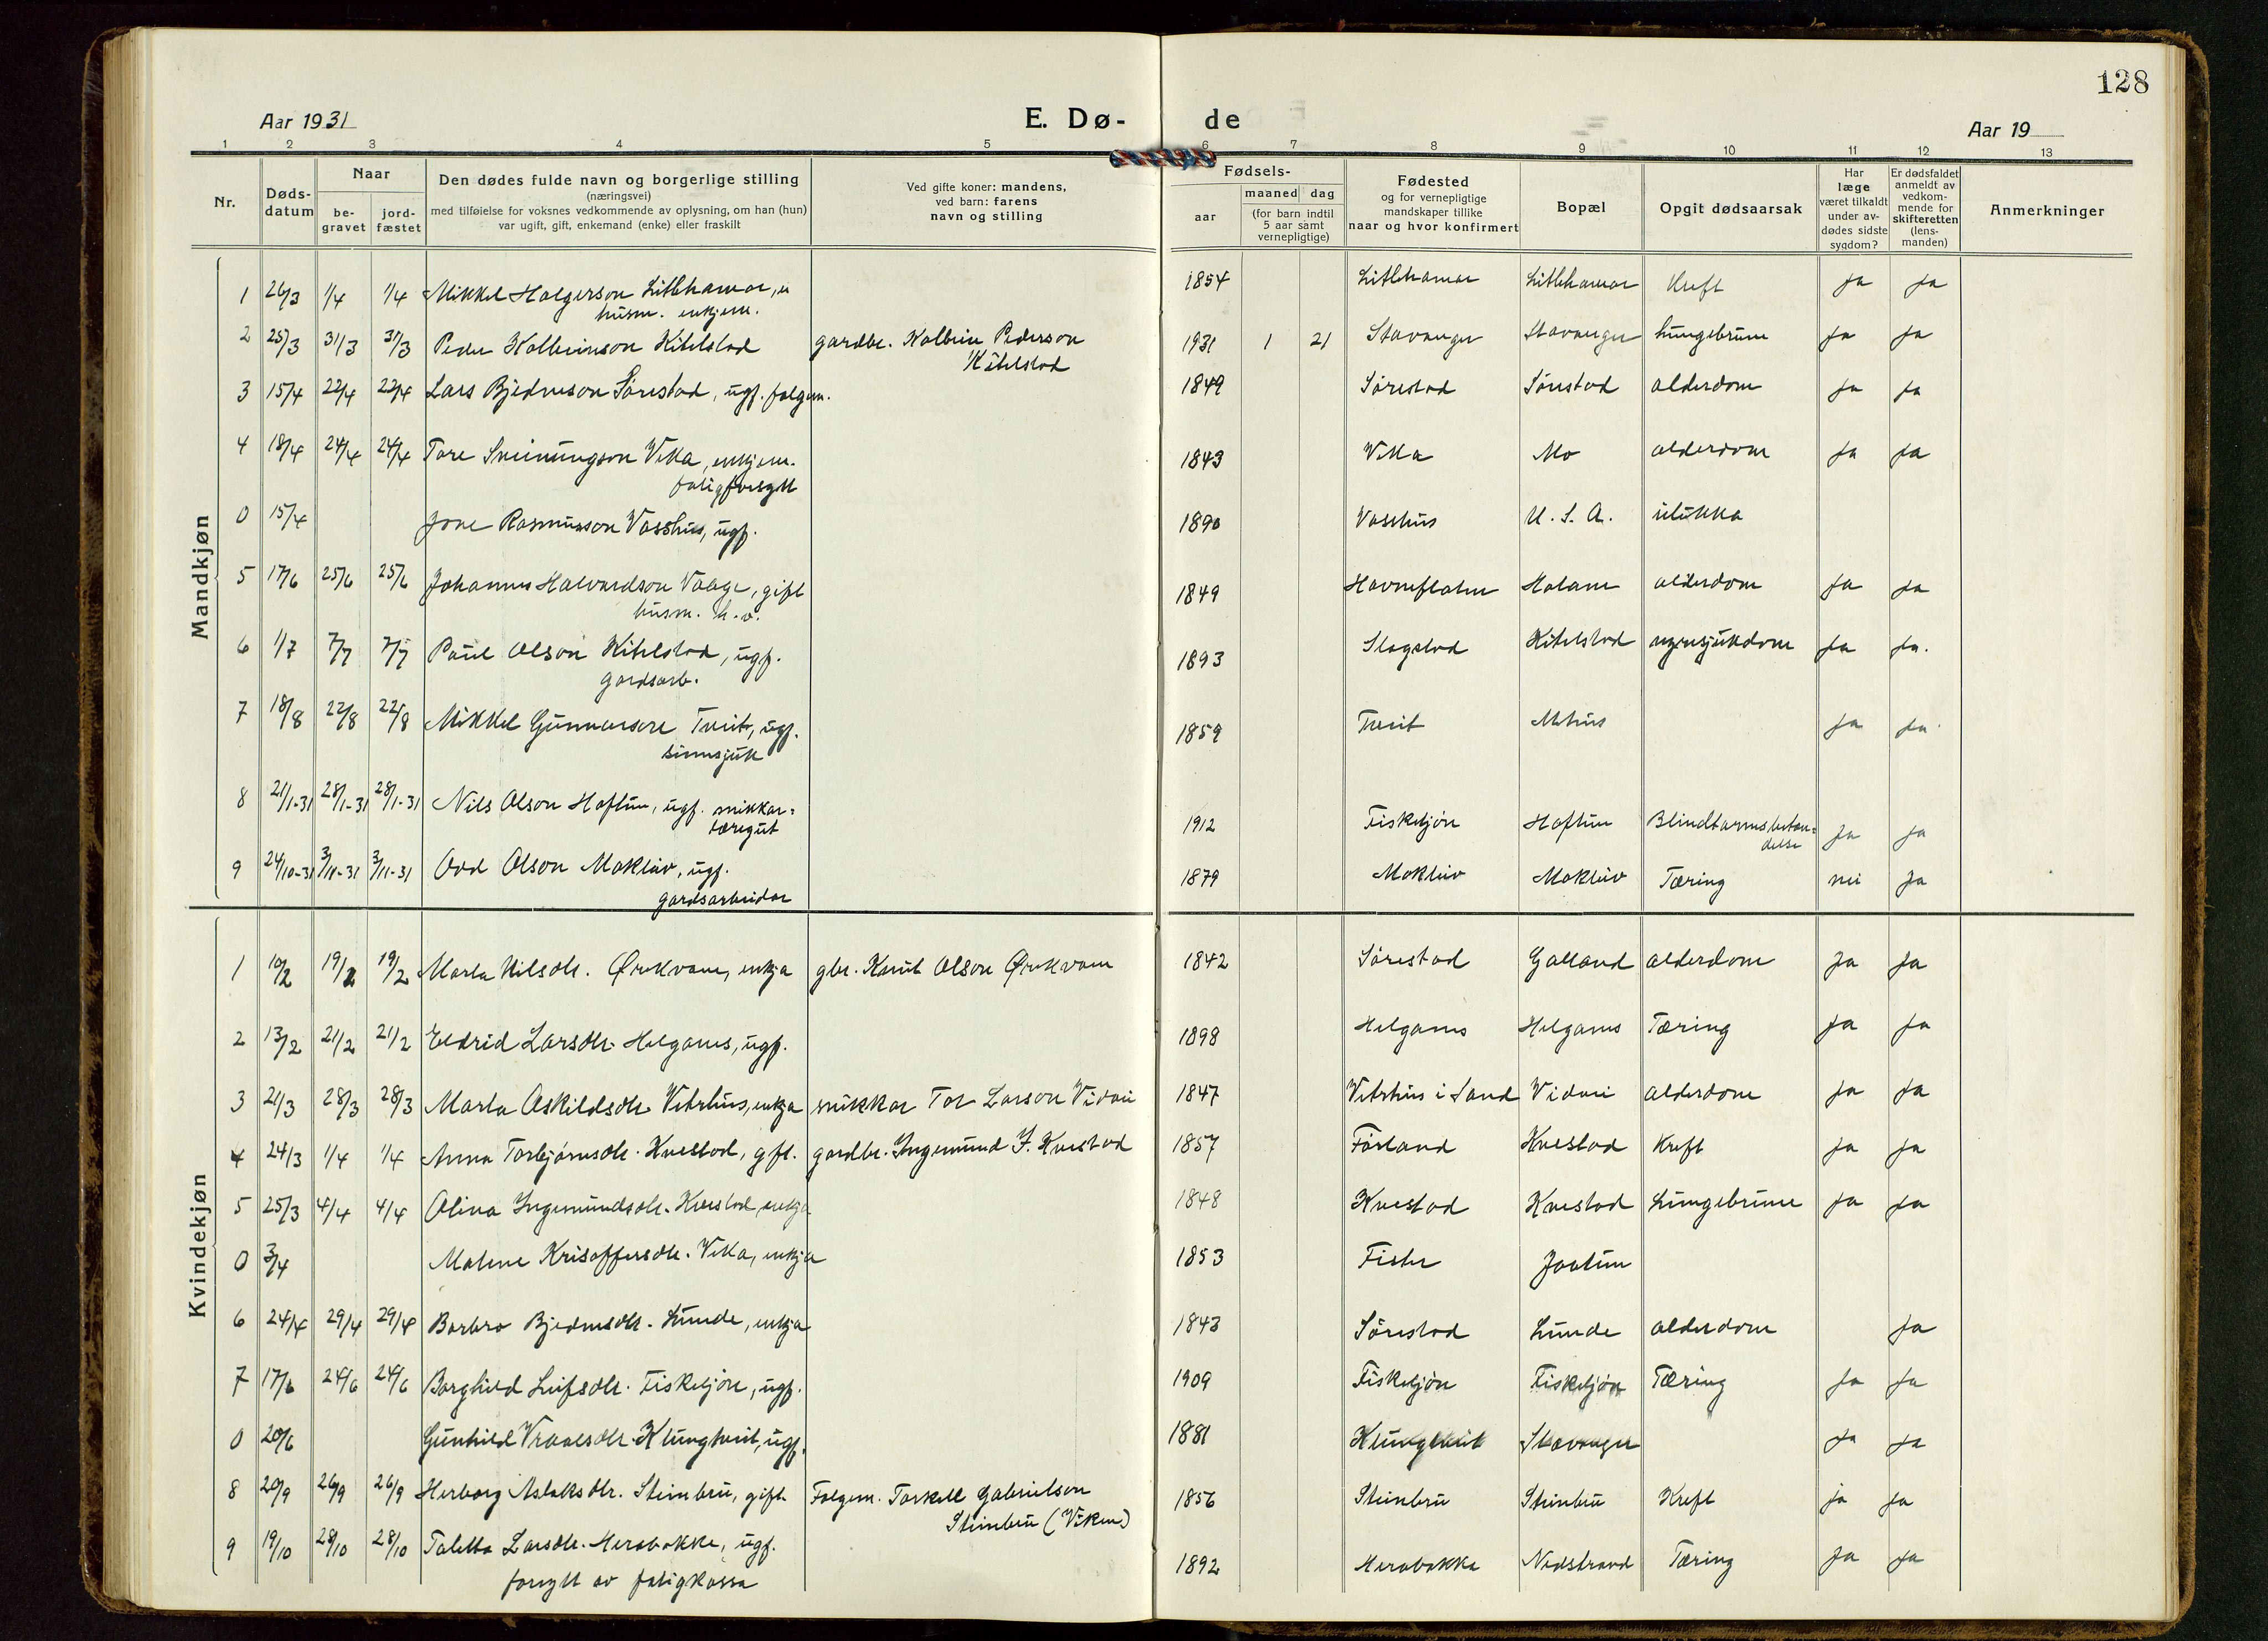 128
Aar 1931
E. Dø-
de
Aar 19
1 2 3 4 5 6 7 8 9 10 11 12 13
Nr.
Døds-
datum
Naar
be-
gravet
jord-
fæstet
Den dødes fulde navn og borgerlige stilling
(næringsvei)
med tilføielse for voksnes vedkommende av oplysning, om han (hun)
var ugift, gift, enkemand (enke) eller fraskilt
Ved gifte koner: mandens,
ved barn: farens
navn og stilling
Fødsels-
aar
maaned dag
(for barn indtil
5 aar samt
vernepligtige)
Fødested
og for vernepligtige
mandskaper tillike
naar og hvor konfirmert
Bopæl
Opgit dødsaarsak
Har
læge
været tilkaldt
under av-
dødes sidste
sygdom?
Er dødsfaldet
anmeldt av
vedkom-
mende for
skifteretten
(lens-
manden)
Anmerkninger
Mandkjøn
1 26/3 1/4 1/4 Mikkel Holgerson Litlehamar, 1854 Litlehamar Litlehamar Kreft ja ja
husm. enkjem.
2 25/3 31/3 31/3 Peder Kolbeinson Kitelstad gardbr. Kolbein Pederson 1931 1 21 Stavanger Stavanger lungebrune ja ja
Kitelstad
3 15/4 22/4 22/4 Lars Bjedneson Sørestad, ugf. folgem. 1849 Sørestad Sørestad alderdom ja ja
4 18/4 24/4 24/4 Tore Sveinungson Vika, enkjem. 1843 Vika Mo alderdom ja ja
fatigforsytt
0 15/4 Jone Rasmusson Vasshus, ugf. 1890 Vasshus U. S. A. ulukka
5 17/6 25/6 25/6 Johannes Halvardson Vaage, gift 1849 Havneflaten Halane alderdom ja ja
husm. h.v.
6 1/7 7/7 7/7 Paul Olson Kitelstad, ugf. 1893 Slagstad Kitelstad nyresjukdom ja ja.
gardsarb.
7 18/8 22/8 22/8 Mikkel Gunnarson Tveit, ugf. 1859 Tveit ja ja
sinnsjuk
8 21/1-31 28/1-31 28/1-31 Nils Olson Hoftun, ugf. snikkar= 1912 Fisketjøn Hoftun Blindtarmsbeten= ja ja
læregut
delse
9 24/10-31 3/11-31 3/11-31 Odd Olson Mokleiv, ugf. 1879 Mokleiv Mokleiv Tæring nei ja
gardsarbeidar
Kvindekjøn
1 10/2 19/2 19/2 Marta Nilsdtr. Ørekvam, enkja gbr. Knut Olson Ørekvam 1842 Sørestad Galland alderdom ja ja
2 13/2 21/2 21/2 Eldrid Larsdtr. Helganes, ugf. 1898 Helganes Helganes Tæring ja ja
3 21/3 28/3 28/3 Marta Askildsdtr. Vetrhus, enkja snikkar Tor Larson Vidvei 1847 Vetrhus i Sand Vidvei alderdom ja ja
4 24/3 1/4 1/4 Anna Torbjørnsdtr. Kvestad, gft. gardbr. Ingemund J. Kvestad 1857 Førland Kvestad Kreft ja ja
5 25/3 4/4 4/4 Olina Ingemundsdtr. Kvestad, enkja 1848 Kvestad Kvestad Lungebrune ja ja
0 3/4 Malene Krisoffersdtr. Vika, enkja 1853 Fister Jaatun
6 24/4 29/4 29/4 Barbro Bjednesdtr. Lunde, enkja 1843 Sørestad Lunde alderdom ja
7 17/6 24/6 24/6 Borghild Leifsdtr. Fisketjøn, ugf. 1909 Fisketjøn Fisketjøn Tæring ja ja
0 20/6 Gunhild Vraalsdtr. Klungtveit, ugf. 1881 Klungtveit Stavanger ja ja
8 20/9 26/9 26/9 Herborg Aslaksdtr. Steinbru, gift. Folgem. Torkell Gabrielson 1856 Steinbru Steinbru Kreft ja ja
Steinbru (Viken)
9 19/10 28/10 28/10 Taletta Larsdtr. Herabakka, ugf. 1892 Herabakka Nedstrand Tæring ja ja
forsytt av fatigkassa